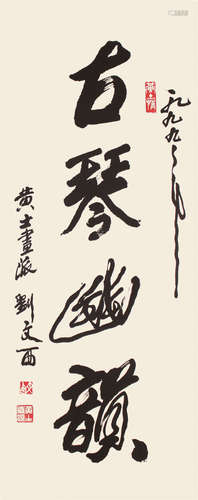 一九九九年
古琴幽韻
黄土畫派 劉文西